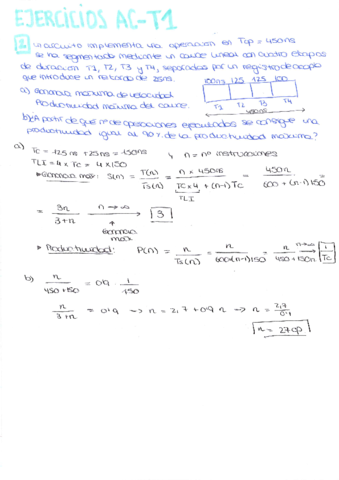 EJERCICIOS AC-T1
1 Un circuito implementa una operación en Top = 450ns
se ha segmentado mediante un cauce lineal con cuatro etapas
de duración T1, T2, T3 y T4, separadas por un registro de acoplo
que introduce un retardo de 25ns.
100ns 125 125 100
T1 T2 T3 T4
450ns
a) Ganancia máxima de velocidad
Productividad máxima del cauce.
b) A partir de que nº de operaciones ejecutadas se consigue una
productividad igual al 90% de la productividad máxima?
a) Tc = 125ns + 25ns = 150ns
n = nº instrucciones
TLI = 4 x Tc = 4 x 150
Ganancia max: S(n) = T(n)/Ts(n) = n x 450ns/(Tc x 4 + (n-1)Tc) = 450n/(600 + (n-1)150) =
TLI
= 3n/(3+n) n→∞ 3
Ganancia
max
Productividad: P(n) = n/Ts(n) = n/(600+(n-1)150) = n/(450+150n) n→∞ 1/Tc
b) n/(450+150) = 0'9 · 1/150
n/(3+n) = 0'9 → n = 2,7 + 0'9n → n = 2,7/0'1
n = 27 op